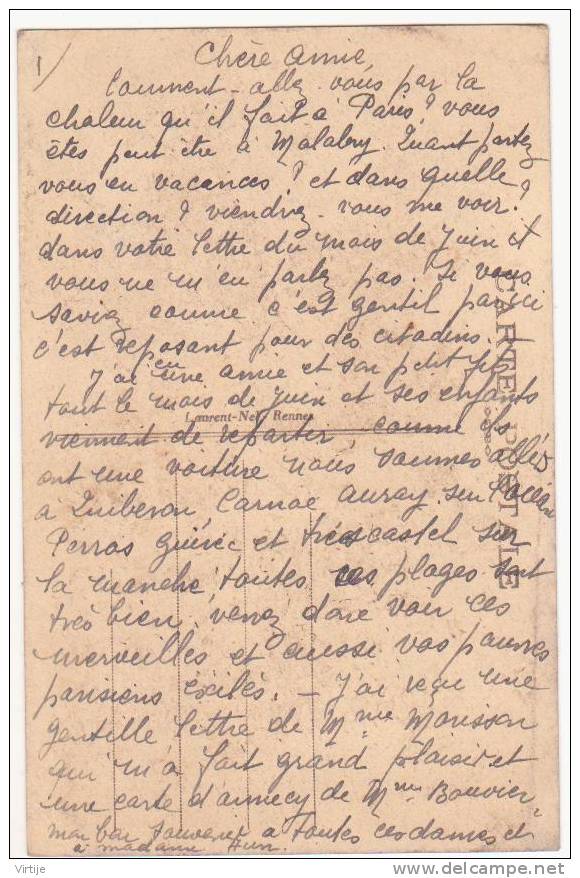 1/
Chère amie,
Comment - allez vous par la
chaleur qu'il fait à Paris? vous
êtes peut être à Malabry. Quant partez
vous en vacances? et dans quelle
direction? viendrez - vous me voir?
dans votre lettre du mois de Juin et
vous ne m'en parlez pas. Si vous
saviez comme c'est gentil par ici
c'est reposant pour des citadins. -
J'ai eu une amie et son petit fils
tout le mois de Juin et ses enfants
Laurent-Nel, Rennes
viennent de repartir, comme ils
ont une voiture nous sommes allés
à Quiberon Carnac Auray sur l'océan
Perros Guirec et trescastel sur
la manche, toutes ces plages sont
très bien, venez donc voir ces
merveilles et aussi vos pauvres
parisiens exilés. - J'ai reçu une
gentille lettre de Mme Morisson
qui m'a fait grand plaisir et
une carte d'annecy de Mme Bouvier
mon bon souvenir à toutes ces dames et
à madame
CARTE POSTALE
Virtije
delcampe.net